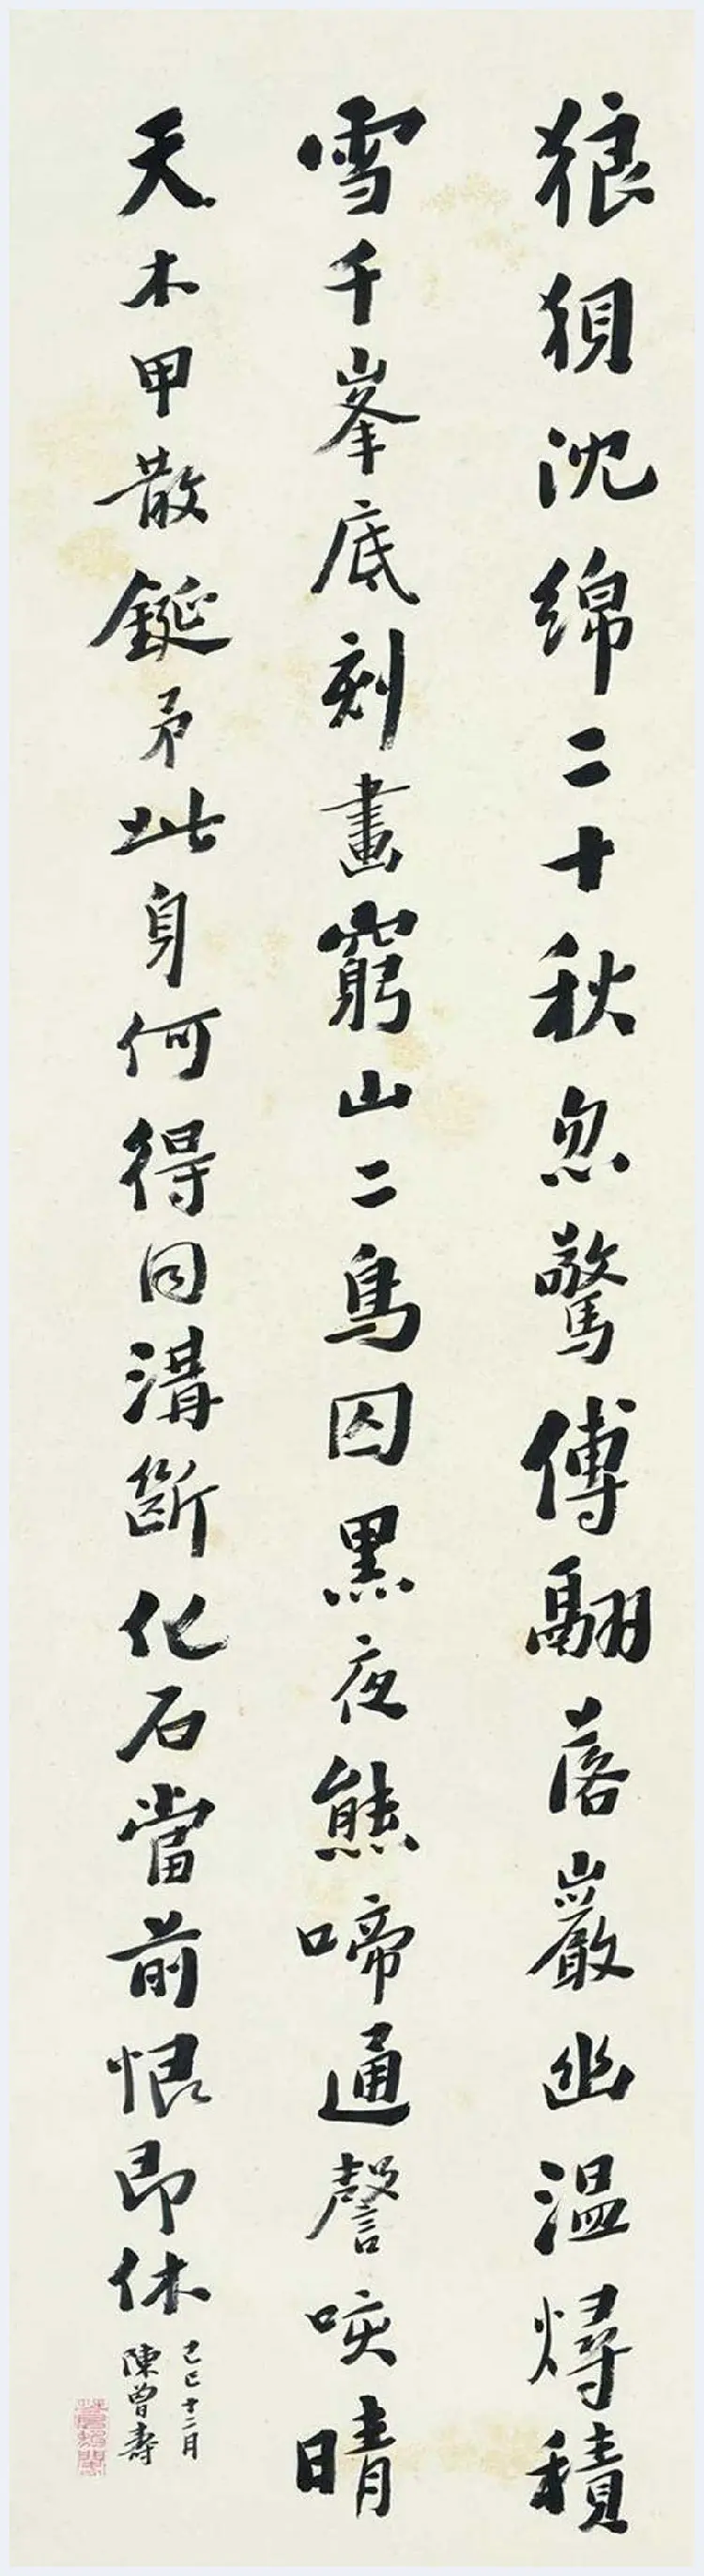 狼狽沈綿二十秋忽驚傅翮落巖幽温燖積
雪千峯底刻畫窮山二鳥囚黑夜熊啼通謦咳晴
天木甲散鋋矛此身何得同溝斷化石當前恨即休
己巳十二月
陳曾壽